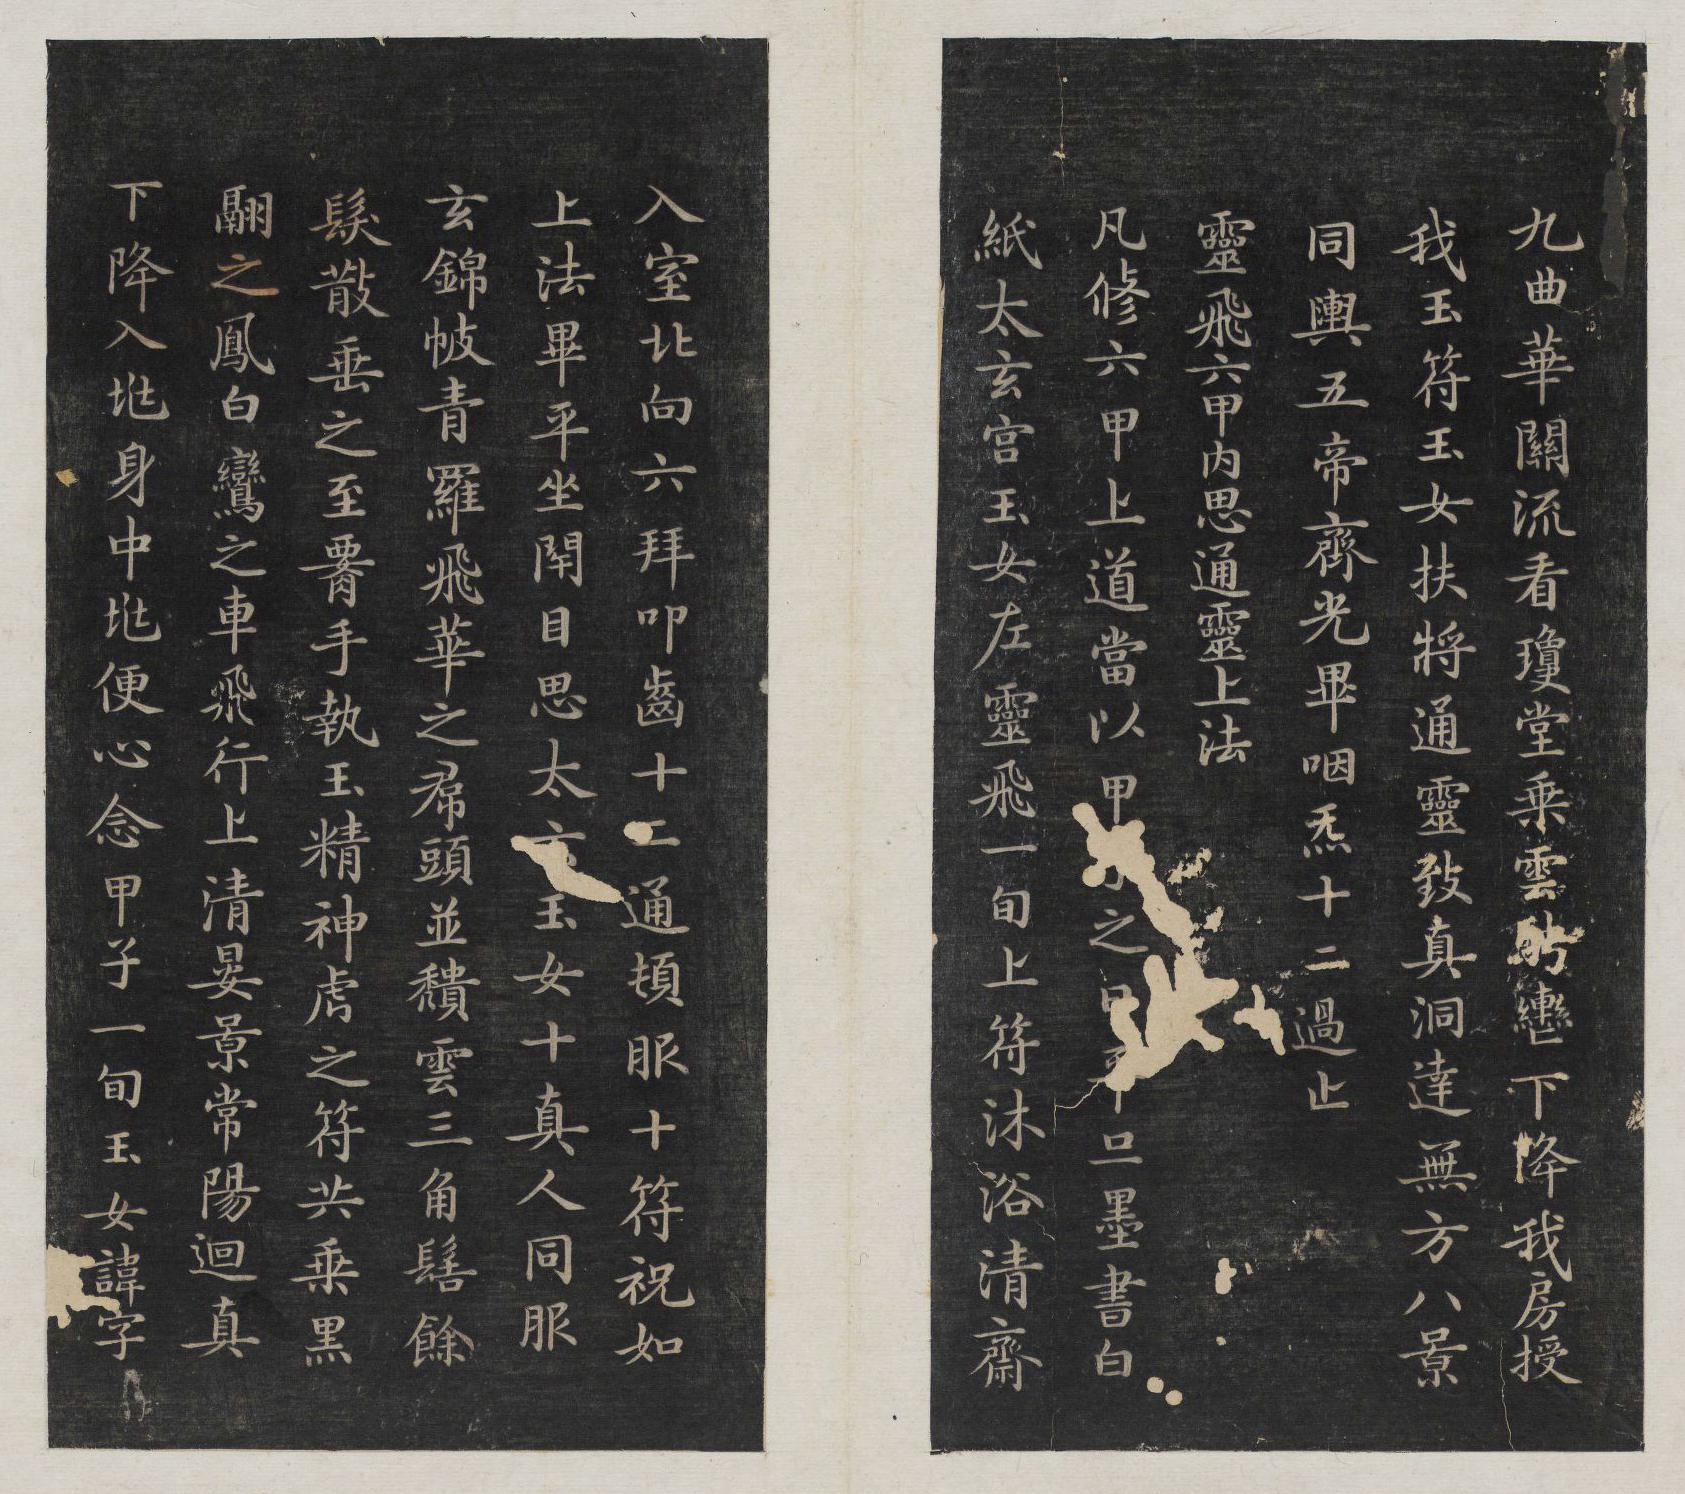 九曲華關流看瓊堂乗雲轡下降我房授
我玉符玉女扶將通靈致真洞達無方八景
同輿五帝齊光畢咽炁十二過止
靈飛六甲内思通靈上法
凡修六甲上道當以甲之日平旦墨書白
紙太玄宫玉女左靈飛一旬上符沐浴清齋
入室北向六拜叩齒十二通頓服十符祝如
上法畢平坐閇目思太玄玉女十真人同服
玄錦帔青羅飛華之帬頭並穨雲三角髻餘
髮散垂之至䙅手執玉精神虎之符共乗黒
翮之鳳白鸞之車飛行上清晏景常陽迴真
下降入兆身中兆便心念甲子一旬玉女諱字